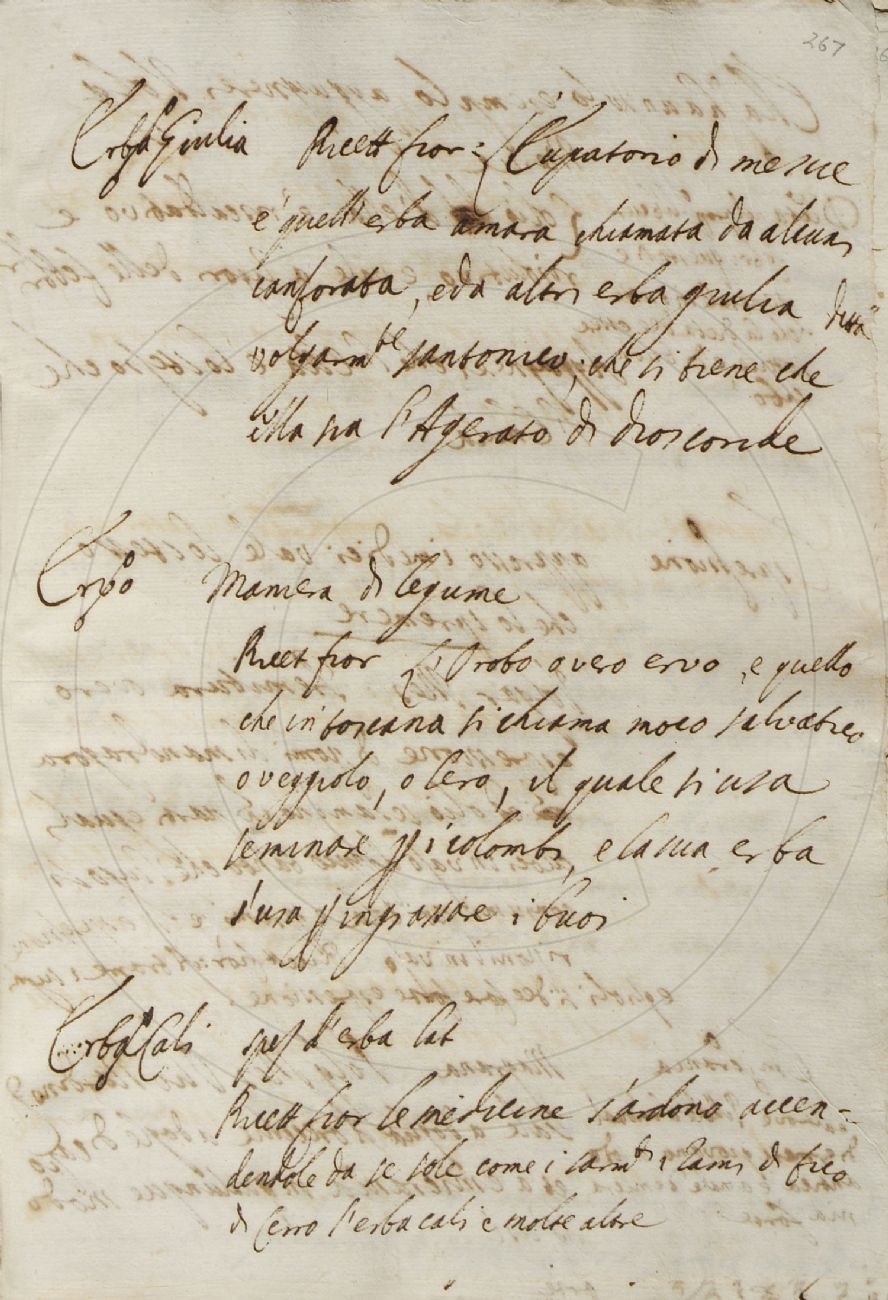 267
Erba Giulia Ricett fior: L'Eupatorio di mesue
e' quell'erba amara chiamata da alcuni
canforata, e da altri erba giulia detta
volgarmte santonico, che si tiene che
ella sia l'Agerato di dioscoride
Ervo Maniera di legume
Ricet fior L'Orobo overo ervo, e quello
che in toscana si chiama moco salvatico
o veggiolo, o lero, il quale si usa
seminare p i colombi, e la sua erba
s'usa p ingrassare i buoi
Erba Cali spez d'erba lat
Ricett fior le medicine s'ardono accen-
dendole da se sole come i sarmti i rami di fico
di cerro l'erba cali e molte altre